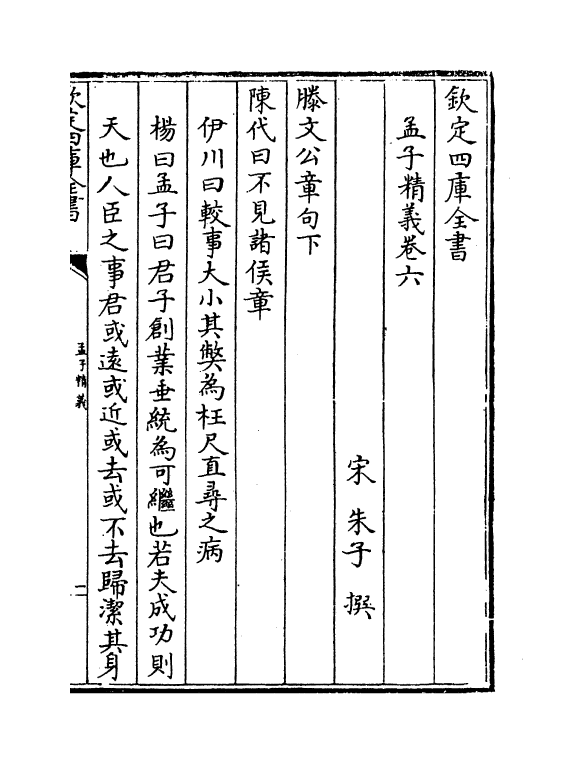 欽定四庫全書
孟子精義卷六
宋 朱子 撰
滕文公章句下
陳代曰不見諸侯章
伊川曰較事大小其弊為枉尺直尋之病
楊曰孟子曰君子創業垂統為可繼也若夫成功則
天也人臣之事君或遠或近或去或不去歸潔其身
欽定四庫全書
孟子精義